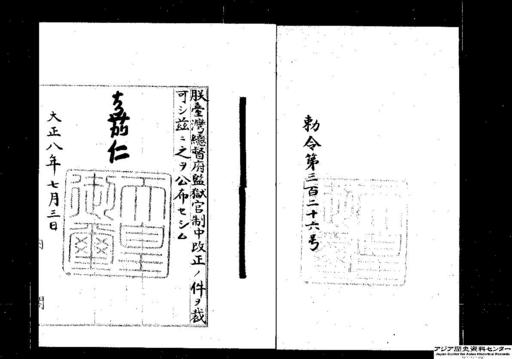 勅令第三百二十六号
朕臺灣總督府監獄官制中改正ノ件ヲ裁
可シ茲ニ之ヲ公布セシム
嘉仁
天皇
御璽
大正八年七月三日
内閣
アジア歴史資料センター
Japan Center for Asian Historical Records